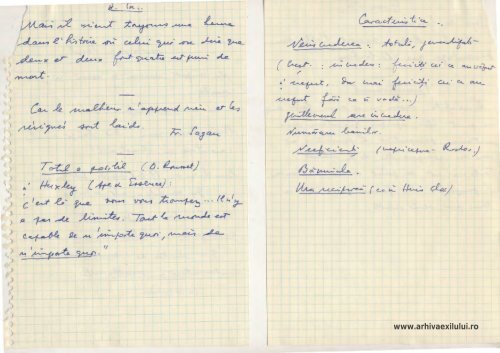 Mais il vient toujours une heure
dans l'histoire où celui qui ose dire que
deux et deux font quatre est puni de
mort.
Car le malheur n'apprend rien et les
résignés sont laids.
Fr. Sagan
Totul e posibil (D. Rousset)
Huxley (Ape & Essence):
C'est là que vous vous trompez... Il n'y
a pas de limites. Tout le monde est
capable de n'importe quoi, mais de
n'importe quoi."
Caracteristica.
Neîncrederea: totală,
încrederea: fericiți cei ce au văzut
și crezut, dar mai fericiți cei ce au
crezut fără ca să vadă...)
are încredere.
Număram banilor.
Neeficienți
Bănuiala
Ura reciprocă (ca în Huis Clos)
www.arhivaexilului.ro